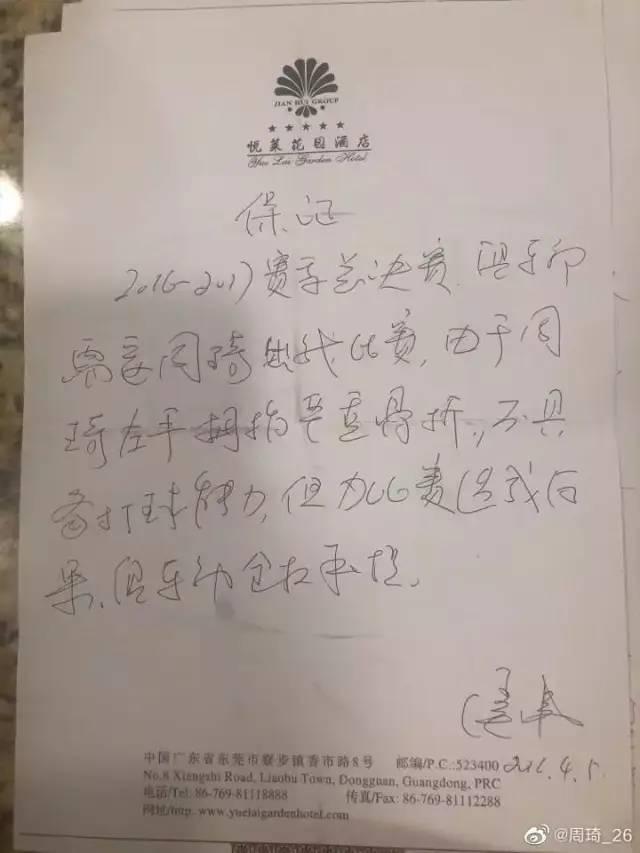 JIAN HUI GROUP
悦莱花园酒店
Yue Lai Garden Hotel
保证
2016-2017赛季总决赛,俱乐部
需要周琦出战比赛,由于周
琦左手拇指严重骨折,不具
备打球能力,但为比赛造成后
果,俱乐部全权承担。
中国广东省东莞市寮步镇香市路8号 邮编/P.C.:523400
No.8 Xiangshi Road, Liaobu Town, Dongguan, Guangdong, PRC
电话/Tel: 86-769-81118888 传真/Fax: 86-769-81112288
网址/http: www.yuelaigardenhotel.com
@周琦_26